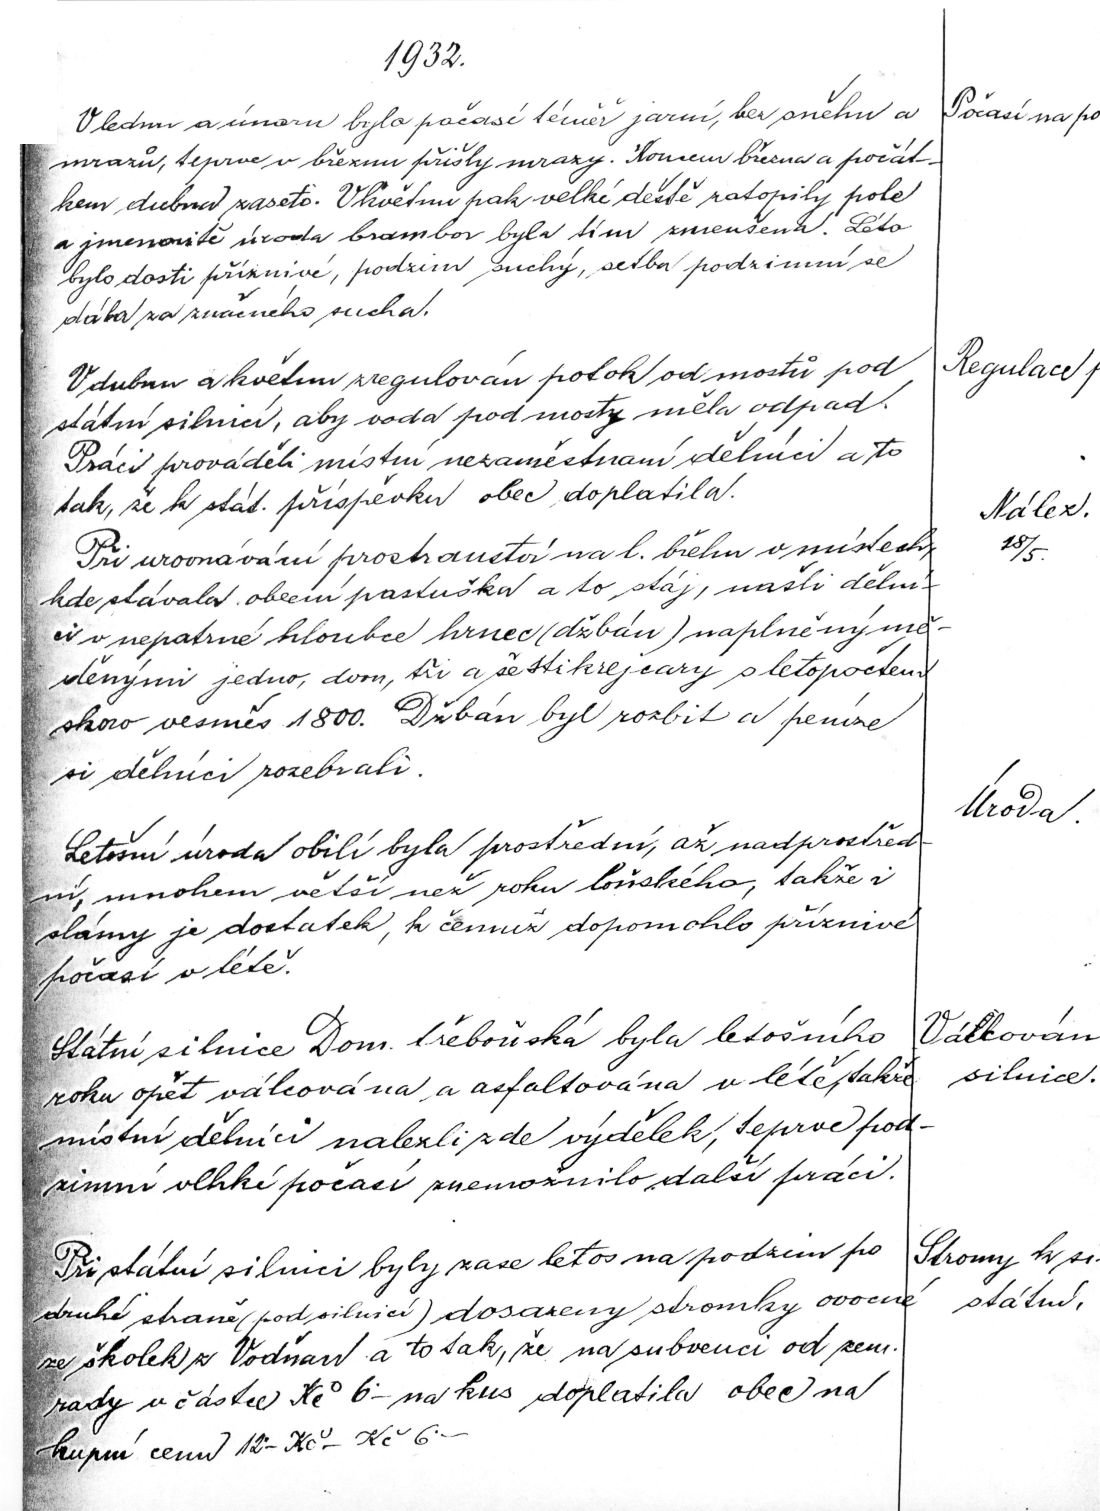 1932.
V lednu a únoru bylo počasí téměř jarní, bez sněhu a
mrazů, teprve v březnu přišly mrazy. Koncem března a počát-
kem dubna zaseto. V květnu pak velké deště zatopily pole
a jmenovitě úroda brambor byla tím zmenšena. Léto
bylo dosti příznivé, podzim suchý, setba podzimní se
dála za značného sucha.
Počasí na po
V dubnu a květnu zregulován potok od mostů pod
státní silnicí, aby voda pod mosty měla odpad.
Práci prováděli místní nezaměstnaní dělníci a to
tak, že k stát. příspěvku obec doplatila.
Regulace p
Při urovnávání prostranství na l. břehu v místech,
kde stávala obecní pastuška a to stáj, našli dělní-
ci v nepatrné hloubce hrnec (džbán) naplněný mě-
děnými jedno, dvou, tři a šestikrejcary s letopočtem
skoro vesměs 1800. Džbán byl rozbit a peníze
si dělníci rozebrali.
Nález.
18/5.
Letošní úroda obilí byla prostřední, až nadprostřed-
ní, mnohem větší než roku loňského, takže i
slámy je dostatek, k čemuž dopomohlo příznivé
počasí v létě.
Úroda.
Státní silnice Dom. třeboňská byla letošního
roku opět válcována a asfaltována v létě, takže
místní dělníci nalezli zde výdělek, teprve pod-
zimní vlhké počasí znemožnilo další práci.
Válcován
silnice.
Při státní silnici byly zase letos na podzim po
druhé straně (pod silnicí) dosazeny stromky ovocné
ze školek z Vodňan a to tak, že na subvenci od zem.
rady v částce Kč 6·- na kus doplatila obec na
kupní cenu 12·- Kč - Kč 6·-
Stromy k si-
státní.